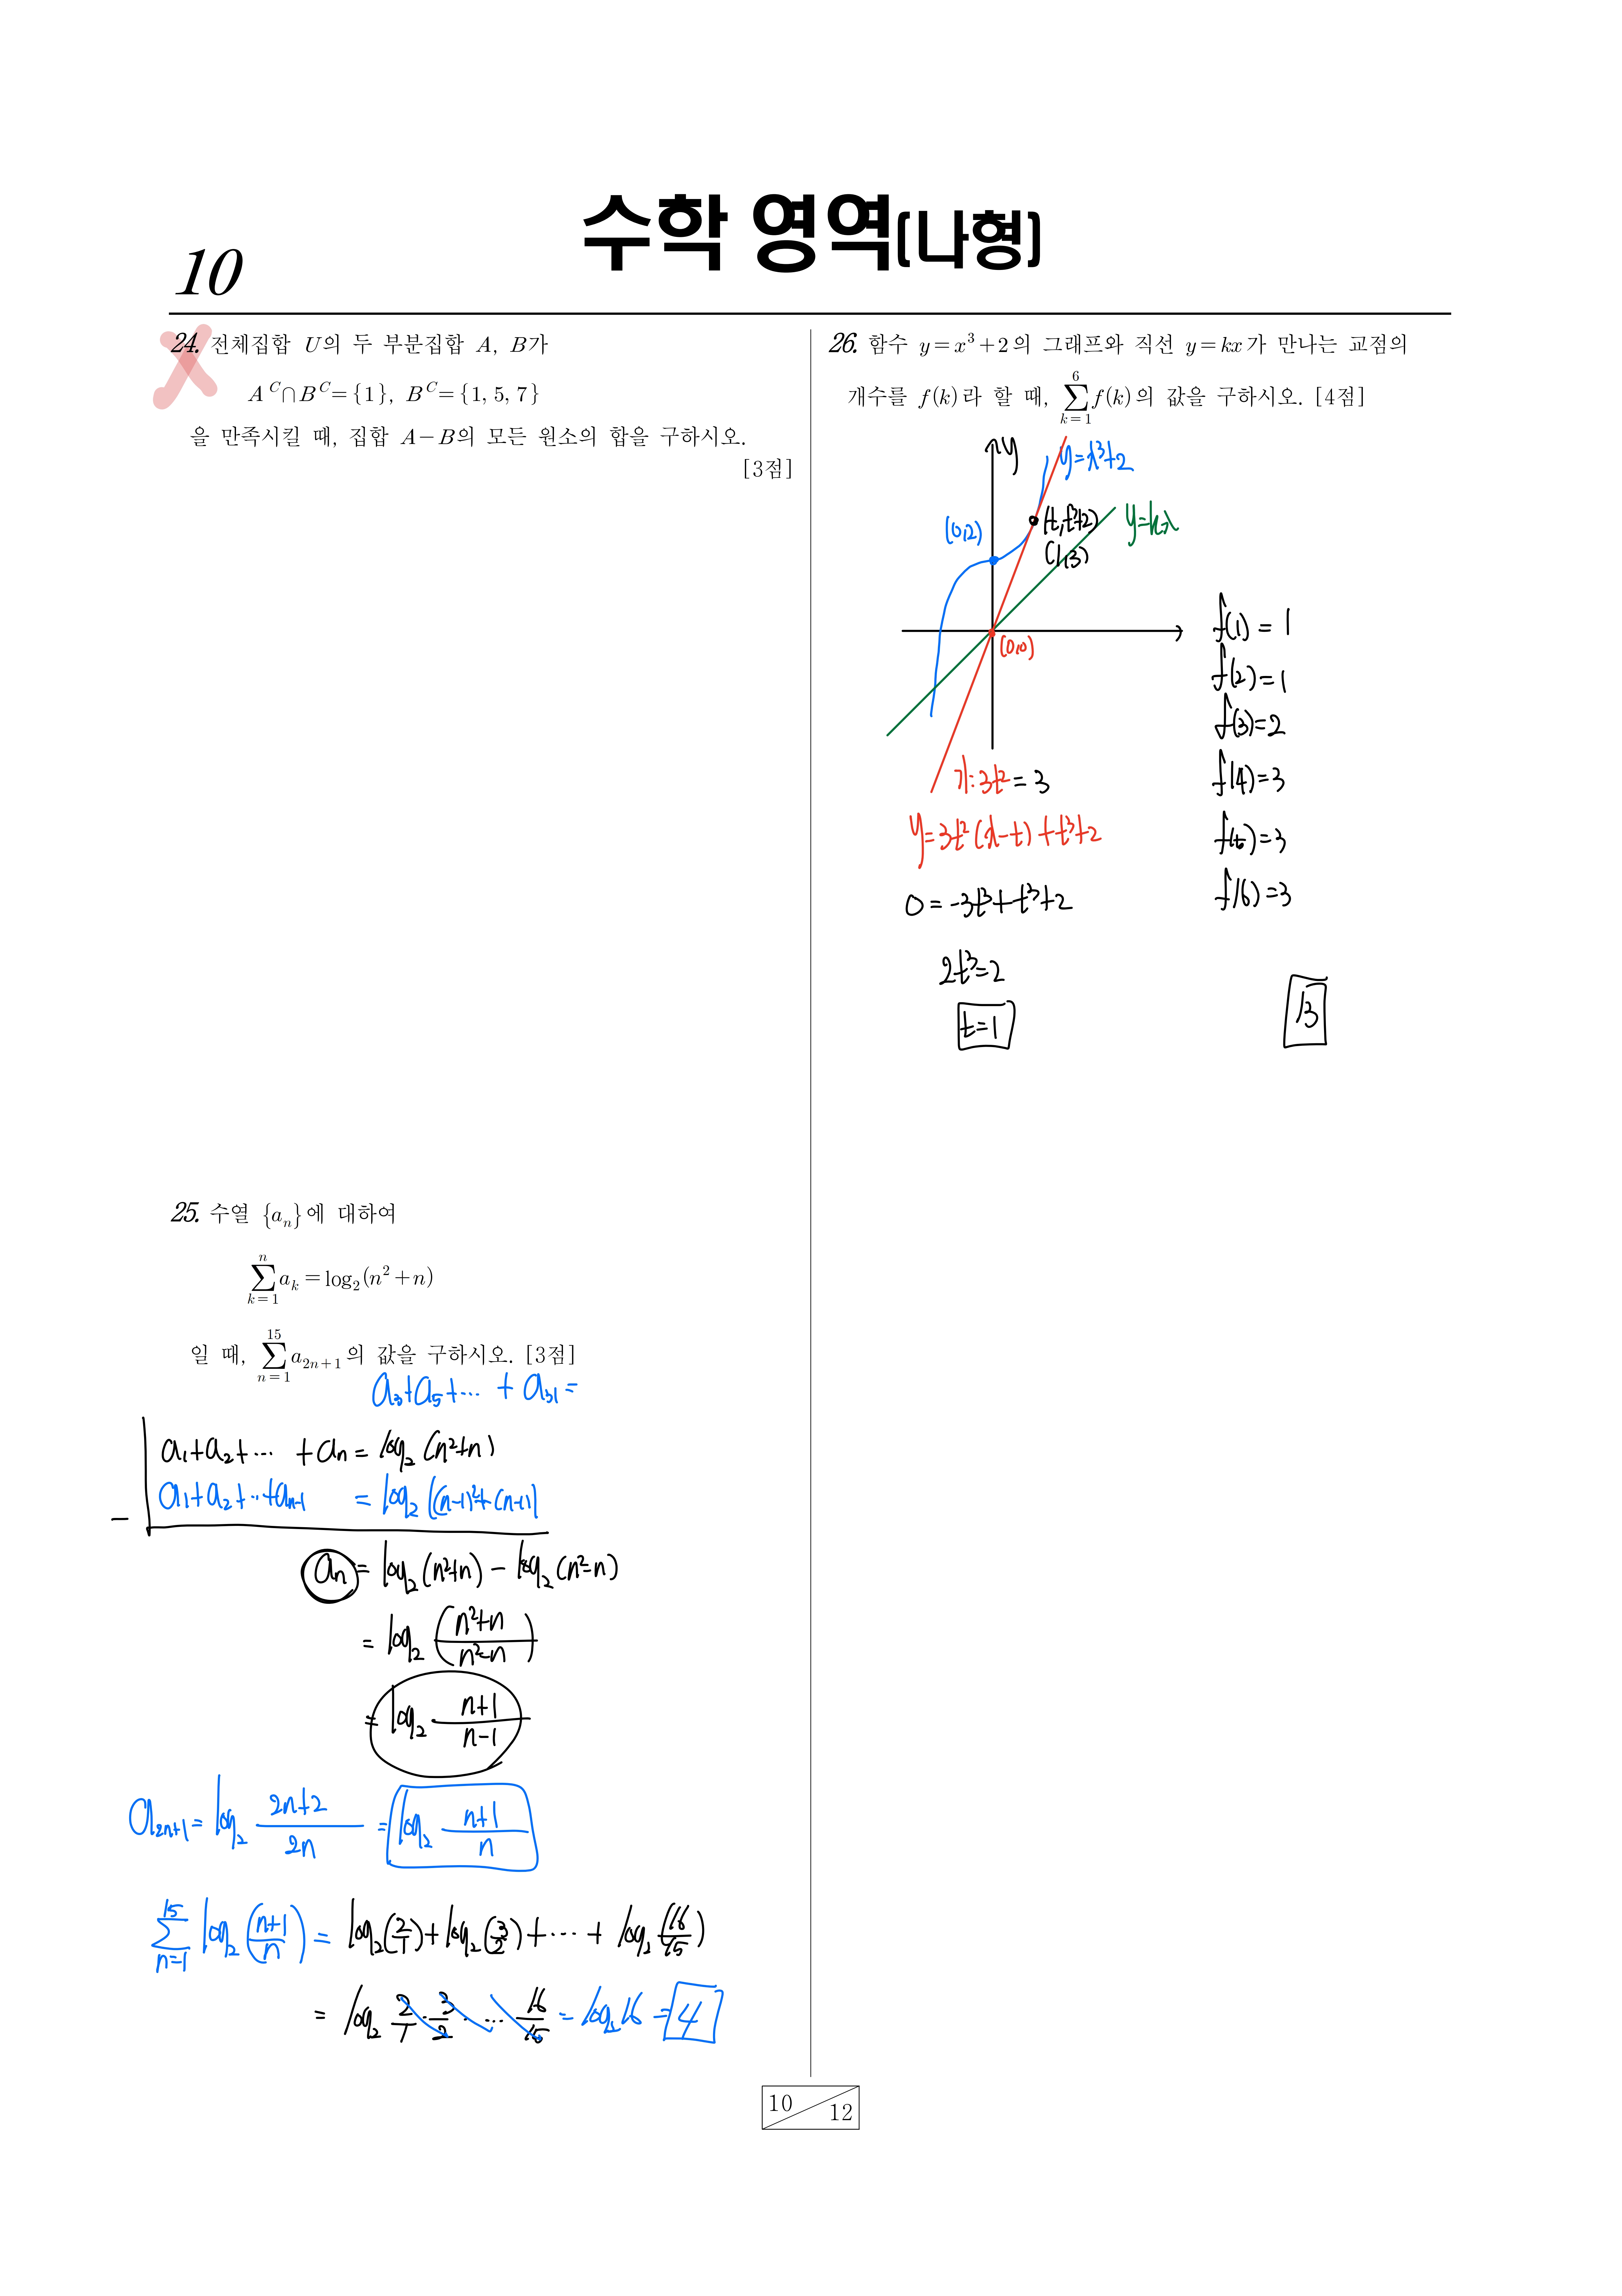 수학 영역(나형)
10
24. 전체집합 U의 두 부분집합 A, B가
A^C∩B^C={1}, B^C={1, 5, 7}
을 만족시킬 때, 집합 A-B의 모든 원소의 합을 구하시오.
[3점]
25. 수열 {a_n}에 대하여
∑_{k=1}^{n} a_k = log_2(n^2+n)
일 때, ∑_{n=1}^{15} a_{2n+1}의 값을 구하시오. [3점]
a_3+a_5+⋯ + a_31 =
a_1+a_2+⋯ +a_n = log_2(n^2+n)
a_1+a_2+⋯+a_{n-1} = log_2((n-1)^2+(n-1))
−
a_n = log_2(n^2+n) - log_2(n^2-n)
= log_2((n^2+n)/(n^2-n))
= log_2 (n+1)/(n-1)
a_{2n+1} = log_2 (2n+2)/(2n) = log_2 (n+1)/n
∑_{n=1}^{15} log_2((n+1)/n) = log_2(2/1)+log_2(3/2)+⋯+ log_2(16/15)
= log_2 2/1 · 3/2 · ⋯ 16/15 = log_2 16 = 4
26. 함수 y=x^3+2의 그래프와 직선 y=kx가 만나는 교점의
개수를 f(k)라 할 때, ∑_{k=1}^{6} f(k)의 값을 구하시오. [4점]
y
y=x^3+2
(0,2)
(t, t^3+2)
(1,3)
y=kx
(0,0)
기: 3t^2 = 3
y=3t^2(x-t)+t^3+2
0 = -3t^3+t^3+2
2t^3=2
t=1
f(1) = 1
f(2) = 1
f(3)=2
f(4)=3
f(5)=3
f(6)=3
13
10
12